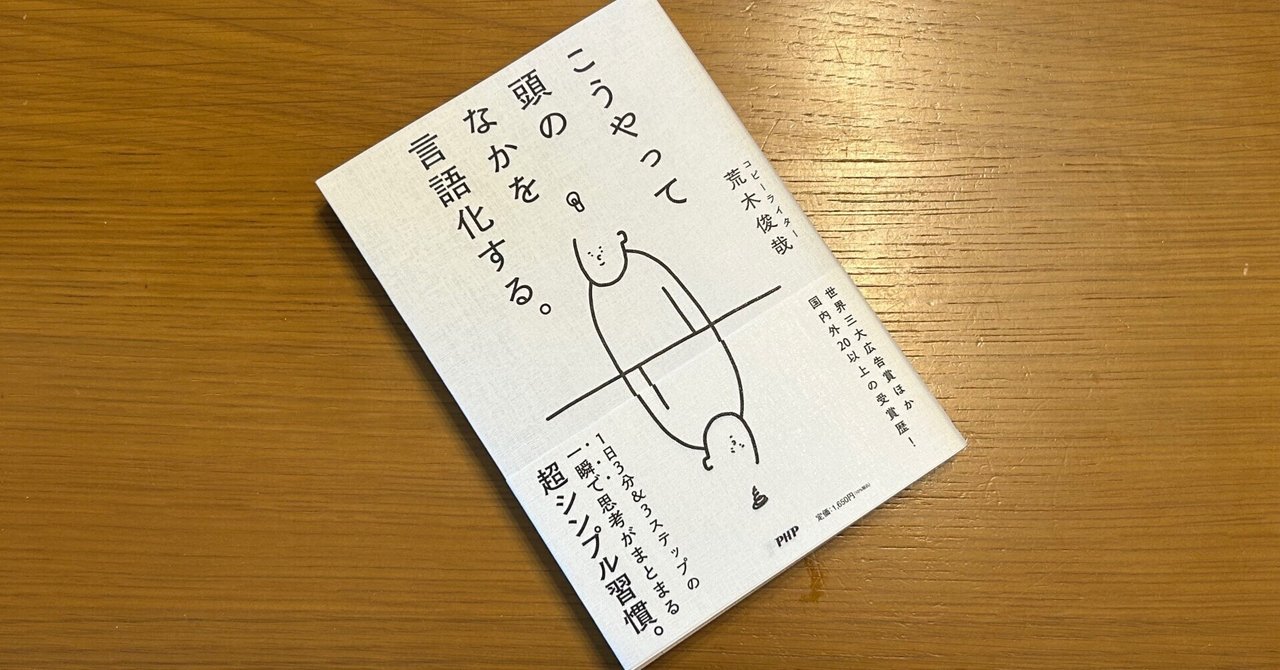 こうやって
頭の
なかを
言語化する。
コピーライター
荒木俊哉
世界三大広告賞ほか
国内外20以上の受賞歴！
1日3分&3ステップの
一瞬で思考がまとまる
超シンプル習慣。
定価：1,650円
PHP